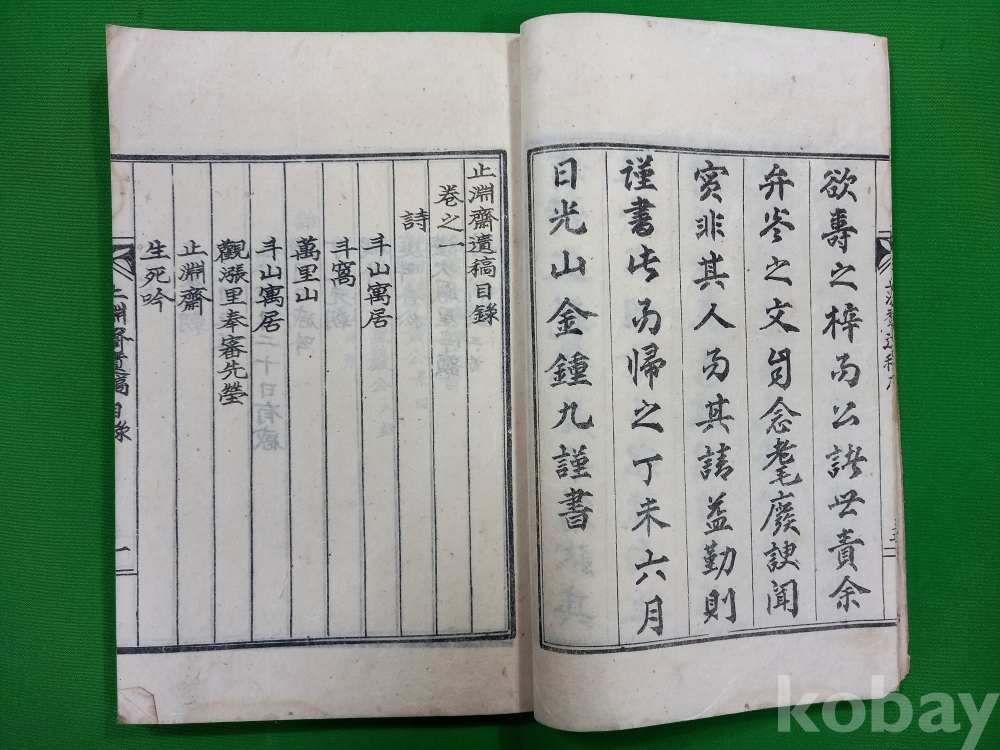 欲壽之梓而公諸世責余
弁卷之文自念耄廢謏聞
實非其人而其請益勤則
謹書此而歸之丁未六月
日光山金鍾九謹書
止淵齋遺稿目錄
卷之一
詩
斗山寓居
斗窩
萬里山
斗山寓居
觀漲里奉審先塋
止淵齋
生死吟
止淵齋遺稿 目錄 一
kobay